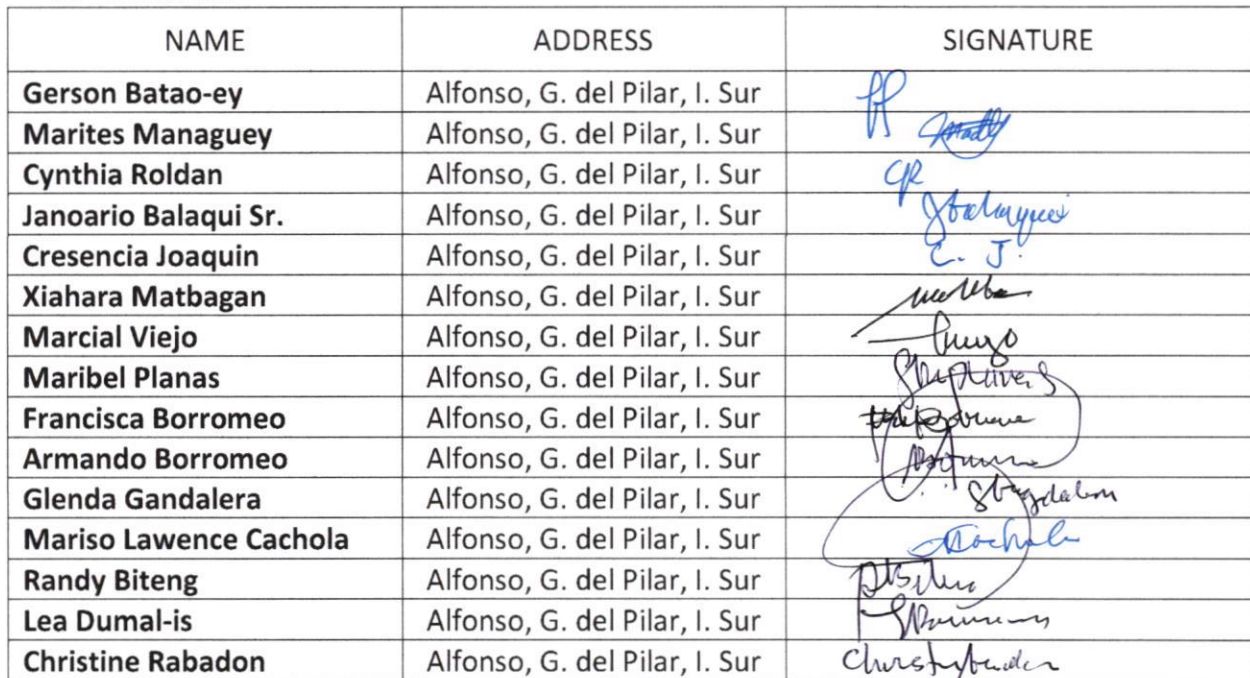 NAME ADDRESS SIGNATURE
Gerson Batao-ey Alfonso, G. del Pilar, I. Sur
Marites Managuey Alfonso, G. del Pilar, I. Sur
Cynthia Roldan Alfonso, G. del Pilar, I. Sur CR
Janoario Balaqui Sr. Alfonso, G. del Pilar, I. Sur
Cresencia Joaquin Alfonso, G. del Pilar, I. Sur C. J.
Xiahara Matbagan Alfonso, G. del Pilar, I. Sur
Marcial Viejo Alfonso, G. del Pilar, I. Sur
Maribel Planas Alfonso, G. del Pilar, I. Sur
Francisca Borromeo Alfonso, G. del Pilar, I. Sur
Armando Borromeo Alfonso, G. del Pilar, I. Sur
Glenda Gandalera Alfonso, G. del Pilar, I. Sur
Mariso Lawence Cachola Alfonso, G. del Pilar, I. Sur
Randy Biteng Alfonso, G. del Pilar, I. Sur
Lea Dumal-is Alfonso, G. del Pilar, I. Sur
Christine Rabadon Alfonso, G. del Pilar, I. Sur